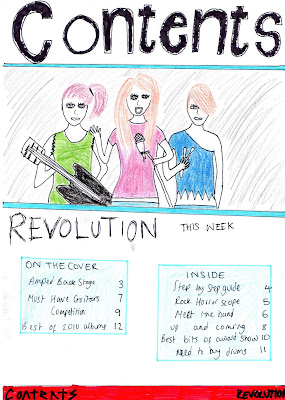 Contents
REVOLUTION THIS WEEK
ON THE COVER
Amped Back Stage 3
Must Have Guitars 7
Competition 9
Best of 2010 albums 12
INSIDE
Step by Step guide 4
Rock Horror scope 5
Meet the band 6
up and coming 8
Best bits of award Show 10
Need to buy drums 11
CONTENTS
REVOLUTION